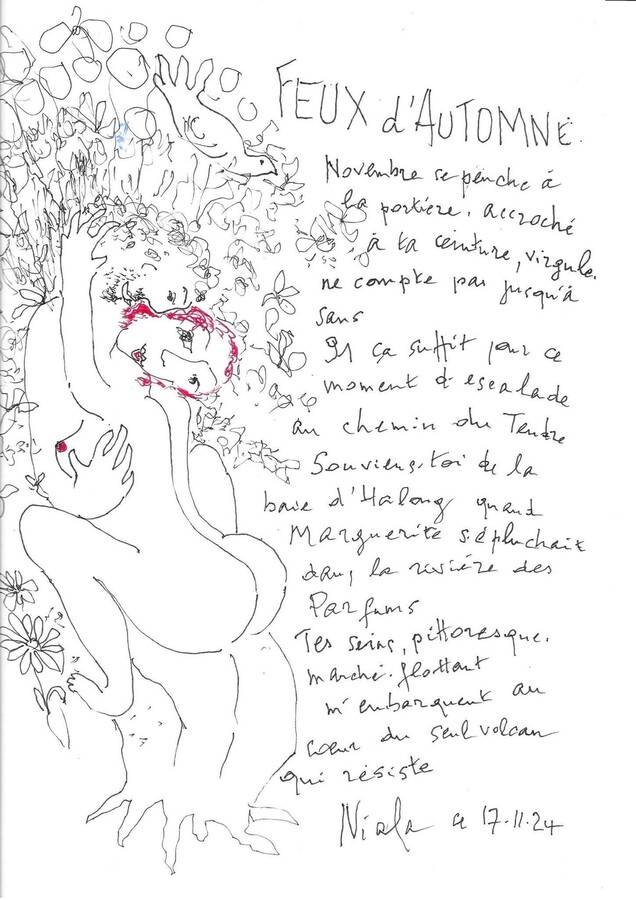 FEUX d'AUTOMNE
Novembre se penche à
la portière. accroché
à ta ceinture, virgule.
ne compte pas jusqu'à
sans
Si ça suffit pour ce
moment d'escalade
au chemin du Tendre
Souviens-toi de la
baie d'Halong quand
Marguerite s'épluchait
dans la rivière des
Parfums
Tes seins, pittoresque.
marché-flottant
m'embarquent au
cœur du seul volcan
qui résiste
Niala 17-11-24